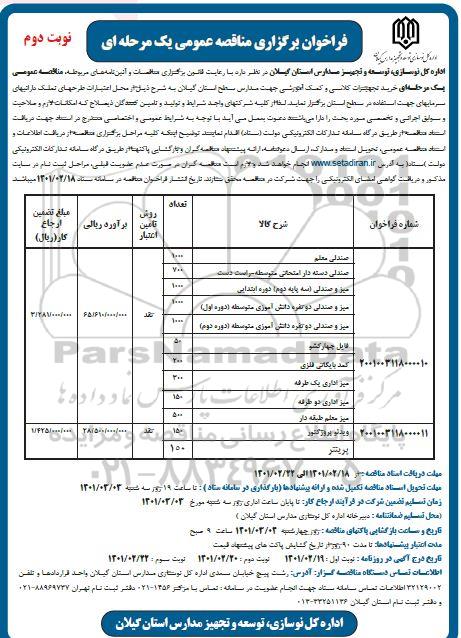 نوبت دوم
فراخوان برگزاری مناقصه عمومی یک مرحله ای
اداره کل نوسازی، توسعه و تجهیز مدارس استان گیلان در نظر دارد با رعایت قانون برگزاری مناقصات و آئین‌نامه‌های مربوطه، مناقصه عمومی
یک مرحله‌ای خرید تجهیزات کلاسی و کمک آموزشی جهت مدارس سطح استان گیلان به شرح ذیل از محل اعتبارات طرحهای تملک دارائیهای
سرمایه‌ای جهت استفاده در سطح استان برگزار نماید. لذا از کلیه شرکتهای واجد شرایط و تولید و تامین کنندگان ذیصلاح که امکانات لازم و صلاحیت
و سوابق اجرایی و تخصصی مورد بحث را دارا می‌باشند دعوت بعمل می آید با توجه به شرایط عمومی و اختصاصی مندرج در اسناد جهت دریافت
اسناد مناقصه از طریق درگاه سامانه تدارکات الکترونیکی دولت (ستاد) اقدام نمایند. توضیح اینکه کلیه مراحل برگزاری مناقصه از دریافت اطلاعات و
اسناد مناقصه عمومی، تحویل اسناد و مدارک، ارسال دعوتنامه، ارائه پیشنهاد مناقصه گران و بازگشایی پاکتها از طریق درگاه سامانه تدارکات الکترونیکی
دولت (ستاد) به آدرس www.setadiran.ir انجام خواهد شد و لازم است مناقصه گران در صورت عدم عضویت قبلی، مراحل ثبت نام در سایت
مذکور و دریافت گواهی امضای الکترونیکی را جهت شرکت در مناقصه محقق سازند. تاریخ انتشار فراخوان مناقصه در سامانه ستاد ۱۴۰۱/۰۴/۱۸ میباشد.
شماره فراخوان شرح کالا تعداد روش تامین اعتبار برآورد ریالی مبلغ تضمین ارجاع کار (ریال)
صندلی معلم ۱۰۰۰
صندلی دسته دار امتحانی متوسطه-راست دست ۷۰۰
میز و صندلی (سه پایه دوم) دوره ابتدایی ۱۰۰۰
میز و صندلی دو نفره دانش آموزی متوسطه (دوره اول) ۱۰۰۰
میز و صندلی دو نفره دانش آموزی متوسطه (دوره دوم) ۱۰۰۰
فایل چهارکشو ۵۰
کمد بایگانی فلزی ۲۰۰
میز اداری یک طرفه ۳۰۰
میز اداری دو طرفه ۱۵۰
میز معلم طبقه دار ۵۰۰
۲۰۰۱۰۰۳۱۱۸۰۰۰۰۱۰ نقد ۶۵/۶۱۰/۰۰۰/۰۰۰ ۳/۲۸۱/۰۰۰/۰۰۰
۲۰۰۱۰۰۳۱۱۸۰۰۰۰۱۱ ویدئو پروژکتور ۱۵۰ نقد ۲۸/۵۰۰/۰۰۰/۰۰۰ ۱/۴۲۵/۰۰۰/۰۰۰
پرینتر ۱۵۰
مهلت دریافت اسناد مناقصه: از ۱۴۰۱/۰۴/۱۸ الی ۱۴۰۱/۰۴/۲۲
مهلت تحویل اسناد مناقصه تکمیل شده و ارائه پیشنهادها (بارگذاری در سامانه ستاد): تا ساعت ۱۹ روز سه شنبه
زمان تسلیم تضمین شرکت در فرآیند ارجاع کار: تا پایان ساعت اداری روز سه شنبه مورخ
(محل تسلیم ضمانتنامه: دبیرخانه اداره کل نوسازی مدارس استان گیلان)
تاریخ و ساعت بازگشایی پاکتهای مناقصه: روز چهارشنبه ساعت ۹ صبح
مدت اعتبار پیشنهادها: تا مدت ۹۰ روز از تاریخ گشایش پاکت های پیشنهاد قیمت
تاریخ درج آگهی در روزنامه: نوبت اول: ۱۴۰۱/۰۴/۱۹ نوبت دوم: ۱۴۰۱/۰۴/۲۰ نوبت سوم: ۱۴۰۱/۰۴/۲۲
اطلاعات تماس دستگاه مناقصه گزار: آدرس: رشت پیچ خیابان سعدی اداره کل نوسازی مدارس استان گیلان واحد قراردادها و تلفن
۳۲۱۲۹۰۰۲ اطلاعات تماس سامانه ستاد جهت انجام عضویت در سامانه: تماس با مرکز ۱۴۵۶-۰۲۱ دفتر ثبت نام تهران ۸۸۹۶۹۷۳۷-۰۲۱
و دفتر ثبت نام استان گیلان ۳۳۲۵۱۱۳۶-۰۱۳
اداره کل نوسازی، توسعه و تجهیز مدارس استان گیلان